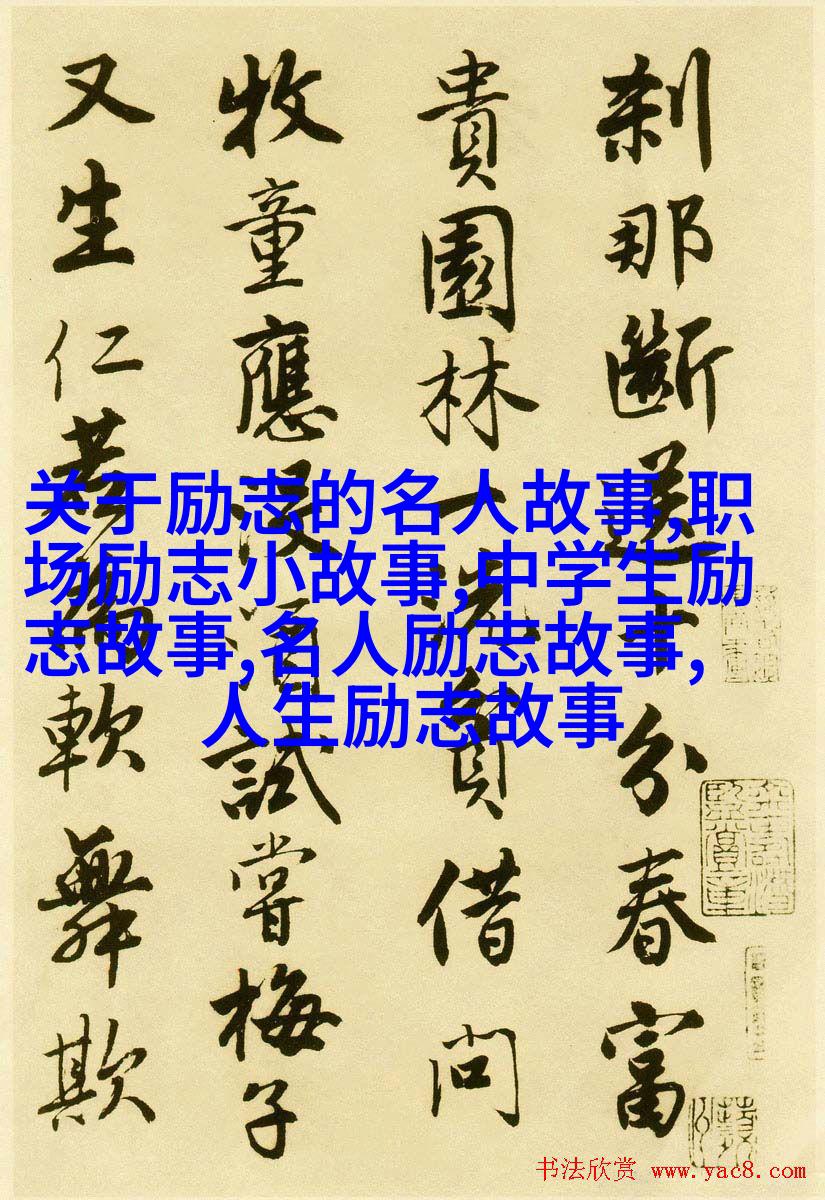 刹那斷送十分春富
貴園林一洗貧借問
牧童應没酒試嘗梅子
又生仁若軟舞欺
关于励志的名人故事,职
场励志小故事,中学生励
志故事,名人励志故事,
人生励志故事
书法欣赏 www.yac8.com